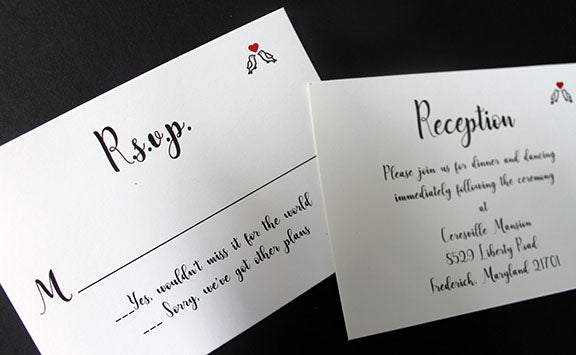 R.s.v.p.
M
___Yes, wouldn't miss it for the world
___ Sorry, we've got other plans
Reception
Please join us for dinner and dancing
immediately following the ceremony
at
Ceresville Mansion
8529 Liberty Road
Frederick, Maryland 21701